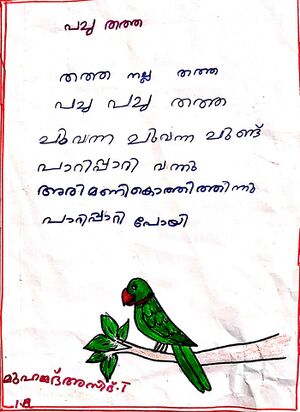 പച്ച തത്ത
തത്ത നല്ല തത്ത
പച്ച പച്ച തത്ത
ചുവന്ന ചുവന്ന ചുണ്ട്
പാറിപ്പാറി വന്നു
അരിമണികൊത്തിത്തിന്നു
പാറിപ്പാറി പോയി
മുഹമ്മദ്അസീൽ.T
1.B